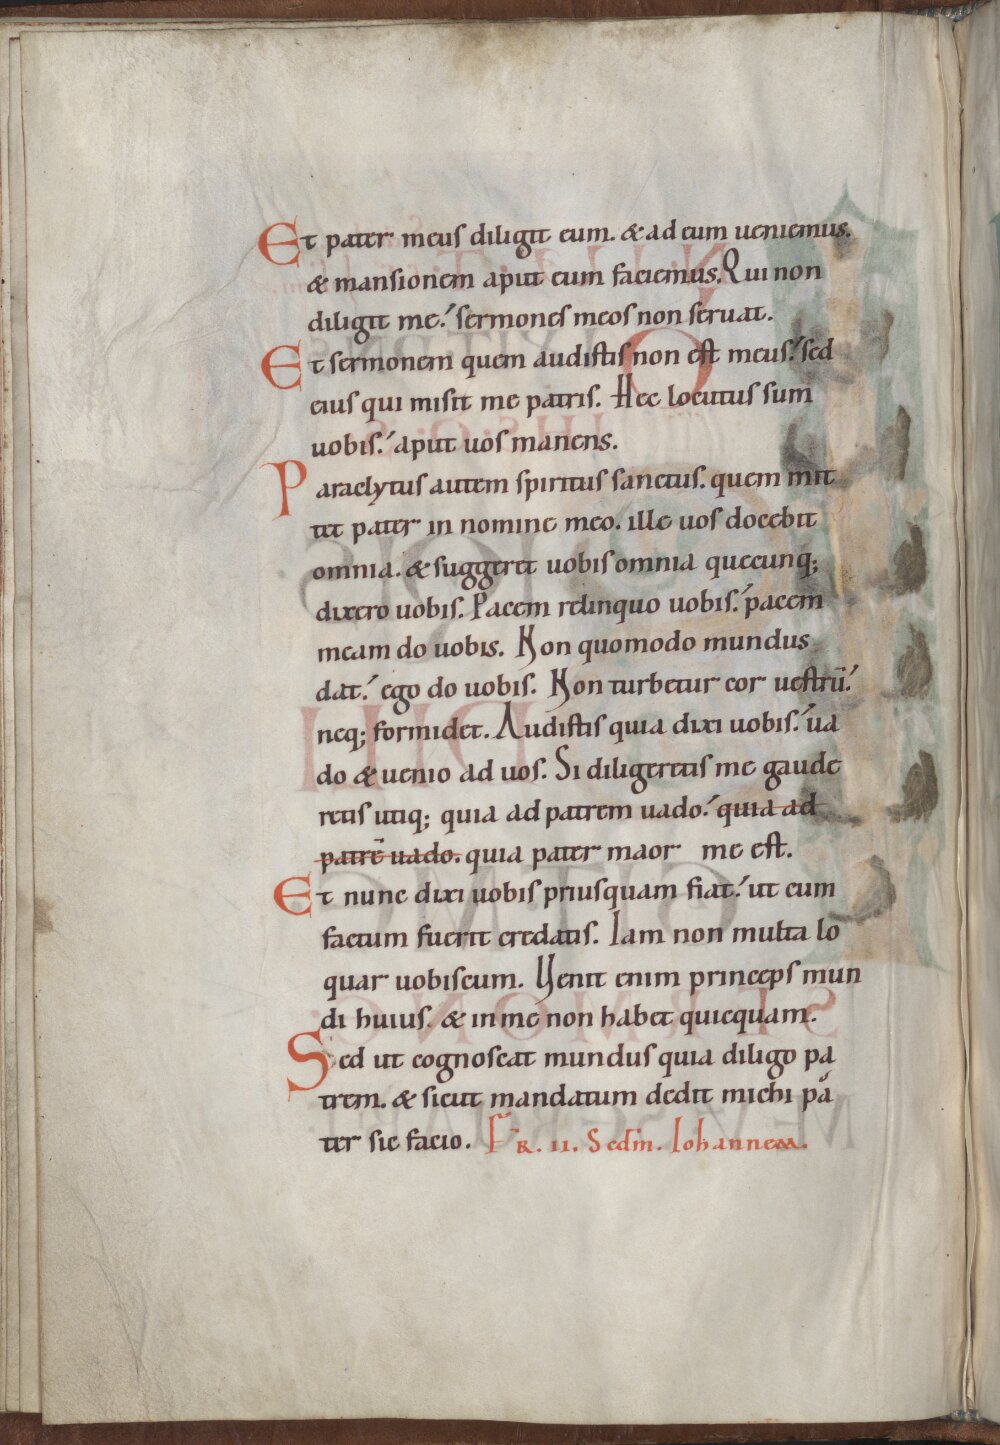 Et pater meus diligit eum. & ad eum ueniemus.
& mansionem aput eum faciemus. Qui non
diligit me. sermones meos non seruat.
Et sermonem quem audistis non est meus. sed
eius qui misit me patris. Hec locutus sum
uobis. aput uos manens.
Paraclytus autem spiritus sanctus. quem mit
tet pater in nomine meo. ille uos docebit
omnia. & suggeret uobis omnia quecunq;
dixero uobis. Pacem relinquo uobis. pacem
meam do uobis. Non quomodo mundus
dat. ego do uobis. Non turbetur cor uestrū.
neq; formidet. Audistis quia dixi uobis. ua
do & uenio ad uos. Si diligeretis me gaude
retis utiq; quia ad patrem uado. quia ad
patrē uado. quia pater maor me est.
Et nunc dixi uobis priusquam fiat. ut cum
factum fuerit credatis. Iam non multa lo
quar uobiscum. Uenit enim princeps mun
di huius. & in me non habet quicquam.
Sed ut cognoscat mundus quia diligo pa
trem. & sicut mandatum dedit michi pa
ter sic facio. FR. II. Scdm. Iohannem.